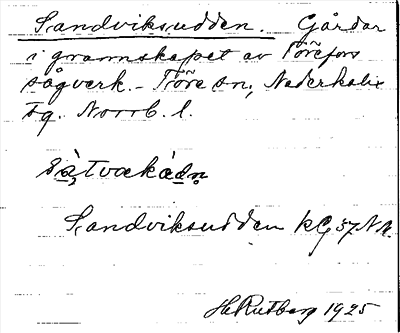 Sandviksudden. Gårdar
i grannskapet av Törefors
sågverk. - Töre sn, Nederkalix
tg. Norrb. l.
Sandviksudden kG 37 NN.
H. Rutberg 1925